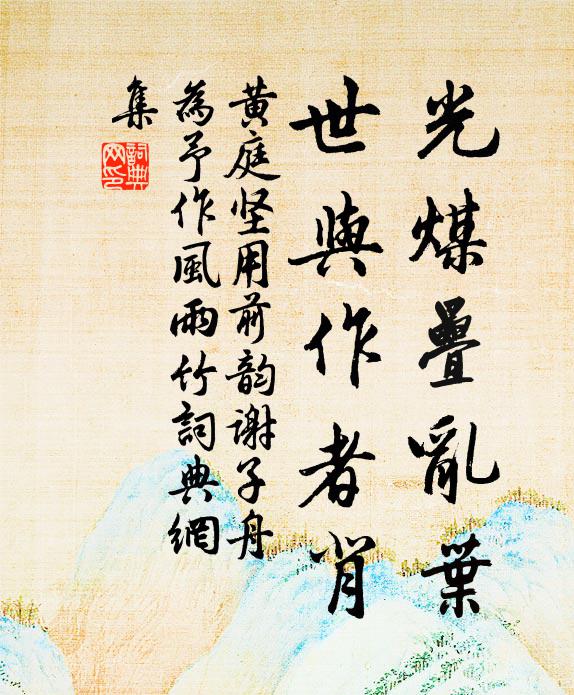 光煤疊亂葉
世與作者肖
黃庭坚用前韵谢子舟
為予作風雨竹詞典網
集
詞典網印